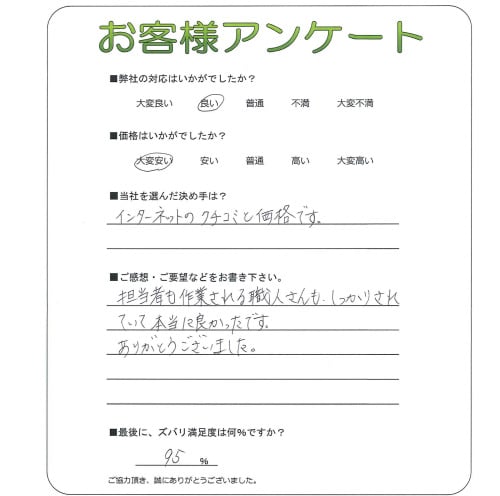 お客様アンケート
■弊社の対応はいかがでしたか?
大変良い 良い 普通 不満 大変不満
■価格はいかがでしたか?
大変安い 安い 普通 高い 大変高い
■当社を選んだ決め手は?
インターネットのクチコミと価格です。
■ご感想・ご要望などをお書き下さい。
担当者も作業される職人さんも、しっかりされ
ていて本当に良かったです。
ありがとうございました。
■最後に、ズバリ満足度は何%ですか?
95 %
ご協力頂き、誠にありがとうございました。